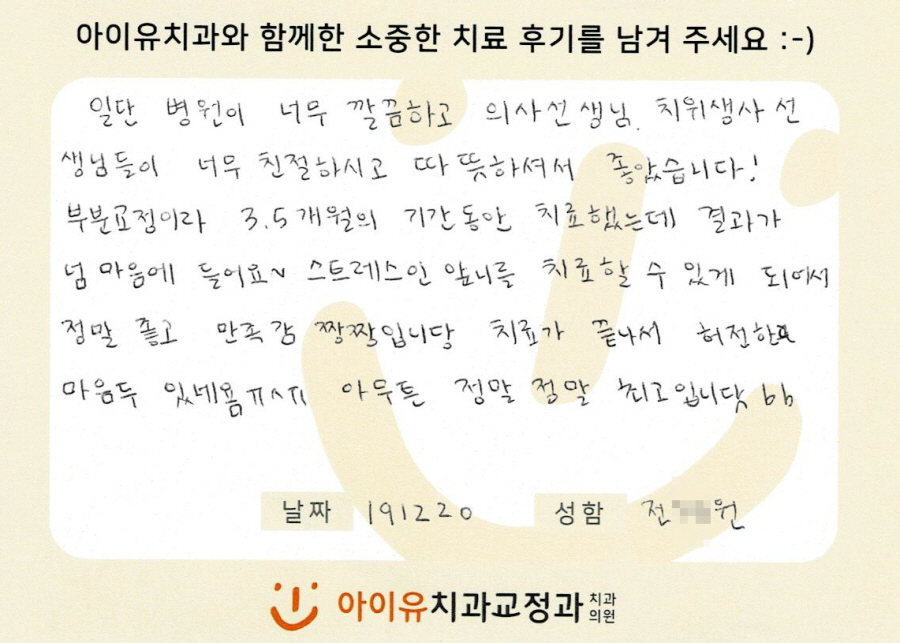 아이유치과와 함께한 소중한 치료 후기를 남겨 주세요 :-)
일단 병원이 너무 깔끔하고 의사선생님, 치위생사 선
생님들이 너무 친절하시고 따뜻하셔서 좋았습니다!
부분교정이라 3.5개월의 기간동안 치료했는데 결과가
넘 마음에 들어요~ 스트레스인 앞니를 치료할 수 있게 되어서
정말 좋고 만족감 짱짝입니당 치료가 끝나서 허전한
마음두 있네욤ㅠㅅㅠ 아무튼 정말 정말 최고입니닷 bb
날짜 191220 성함 전 원
아이유치과교정과 치과의원